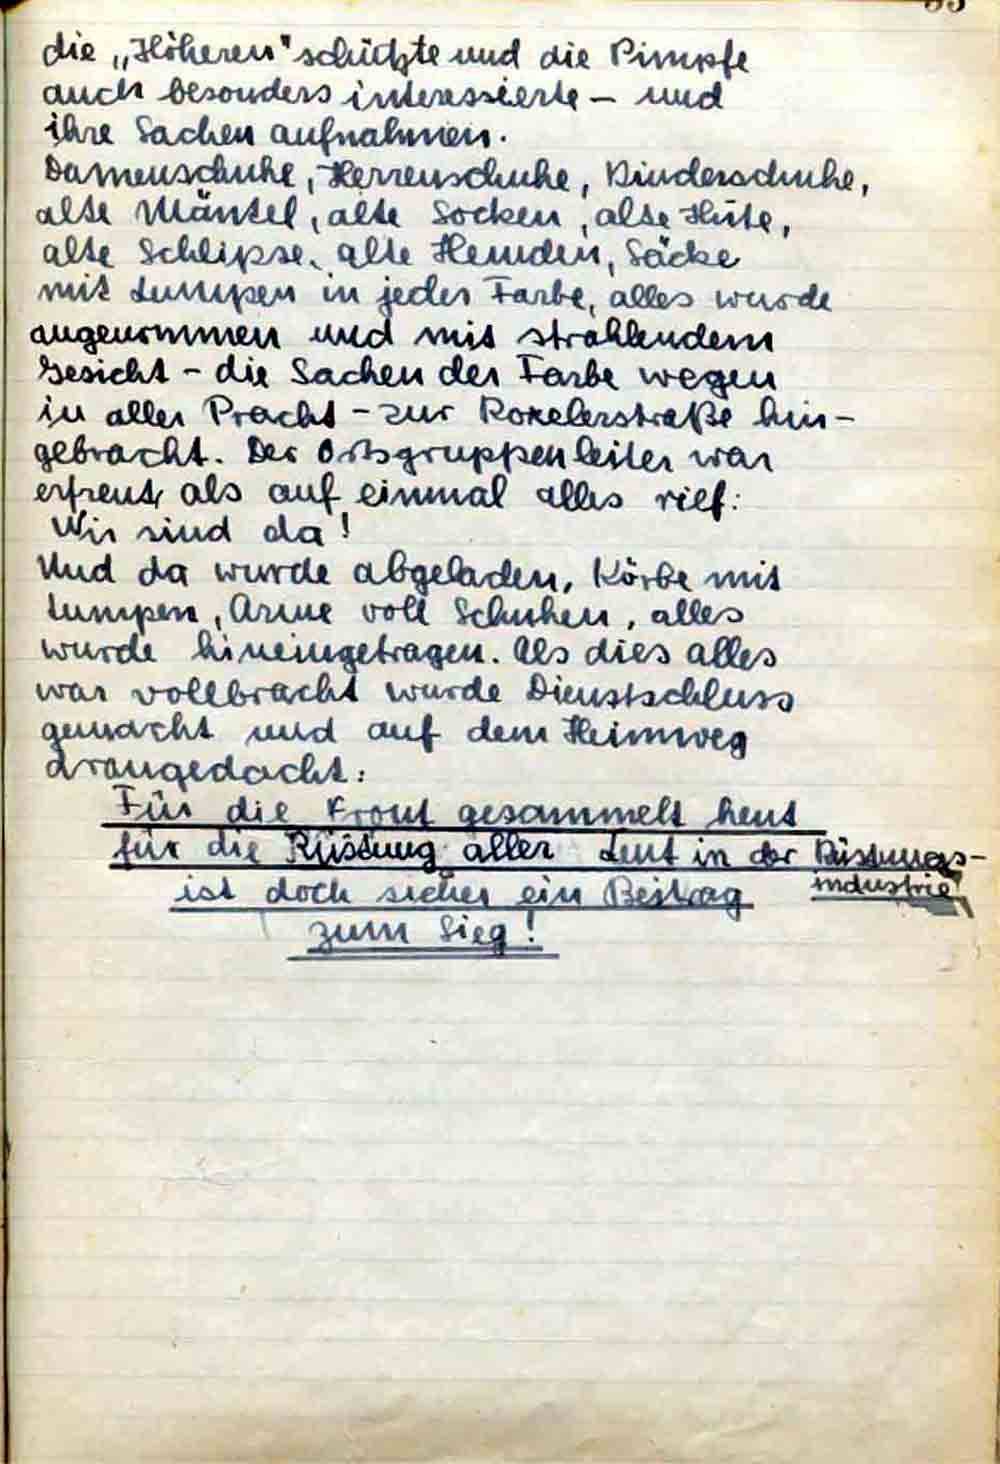 die „Höheren" schützte und die Pimpfe
auch besonders interessierte – und
ihre Sachen aufnahmen.
Damenschuhe, Herrenschuhe, Kinderschuhe,
alte Mäntel, alte Socken, alte Hüte,
alte Schlipse, alte Hemden, Säcke
mit Lumpen in jeder Farbe, alles wurde
angenommen und mit strahlendem
Gesicht – die Sachen der Farbe wegen
in aller Pracht – zur Roxelerstraße hin-
gebracht. Der Ortsgruppenleiter war
erfreut, als auf einmal alles rief:
Wir sind da!
Und da wurde abgeladen, Körbe mit
Lumpen, Arme voll Schuhen, alles
wurde hineingetragen. Als dies alles
war vollbracht wurde Dienstschluss
gemacht und auf dem Heimweg
drangedacht:
Für die Front gesammelt heut
für die Rüstung aller Leut in der Rüstungs-
industrie
ist doch sicher ein Beitrag
zum Sieg!